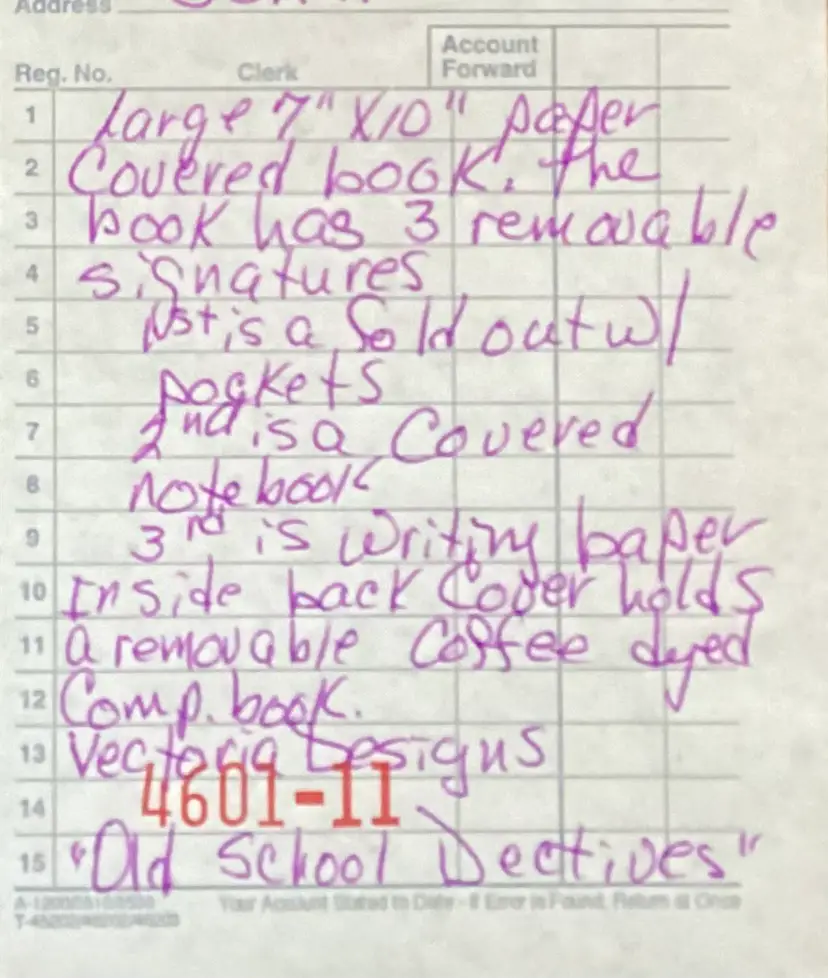 Address
Account
Forward
Reg. No. Clerk
1 Large 7" X10" paper
2 Covered book. The
3 book has 3 removable
4 signatures
5 1st is a fold out w/
6 pockets
7 2nd is a Covered
8 notebook
9 3rd is writing paper
10 Inside back Cover holds
11 a removable Coffee dyed
12 Comp. book.
13 Vectoria Designs
4601-11
14
15 "Old School Dectives"
Your Account Stated to Date - If Error is Found, Return at Once